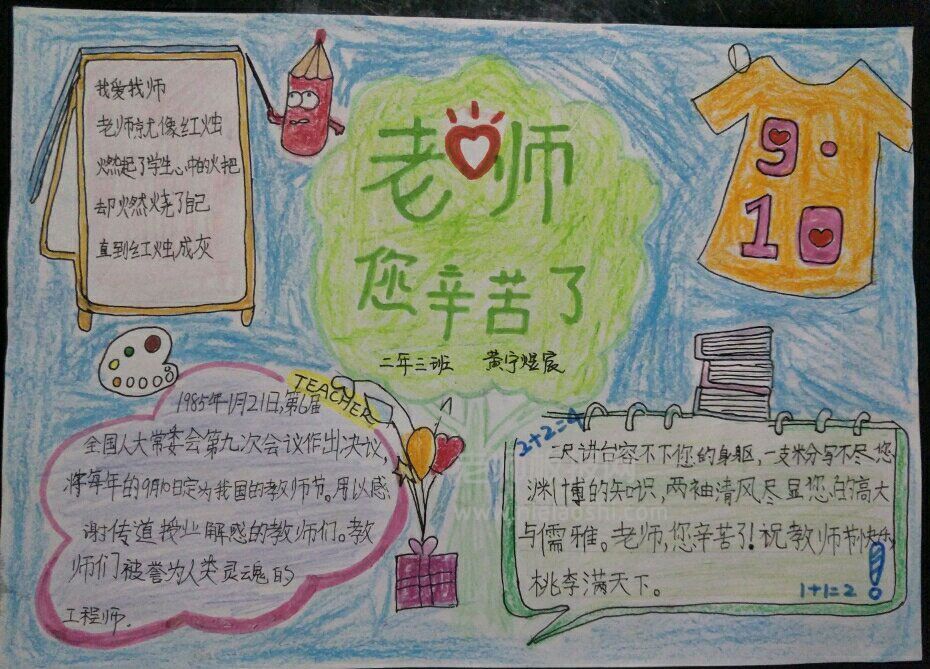 我爱我师
老师就像红烛
燃起了学生心中的火把
却火燃烧了自己
直到红烛成灰
老师
您辛苦了
二年三班 黄宁煜宸
9.
10
TEACHER
1985年1月21日,第6届
全国人大常委会第九次会议作出决议,
将每年的9月10日定为我国的教师节。用以感
谢传道授业解惑的教师们。教
师们被誉为人类灵魂的
工程师.
2+2=4
三尺讲台容不下您的身躯,一支粉写不尽您
渊博的知识,两袖清风尽显您的高大
与儒雅。老师,您辛苦了!祝教师节快乐
桃李满天下。
1+1=2